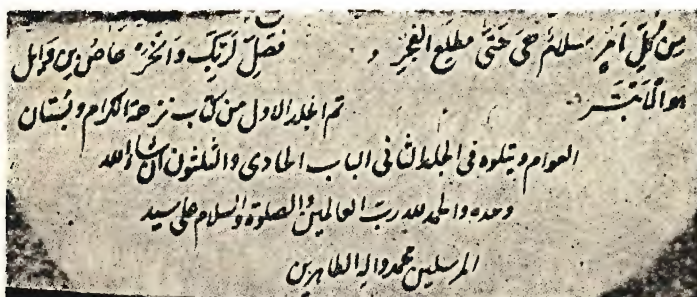 من كل امر سلام هى حتى مطلع الفجر و فصل لربك وانحر عاص بن وايل
هو الابتر
تم المجلد الاول من كتاب نزهة الكرام وبستان
العوام ويتلوه فى المجلد الثانى الباب الحادى والثلثون ان شاء الله
وحده والحمد لله رب العالمين والصلوة والسلام على سيد
المرسلين محمد واله الطاهرين